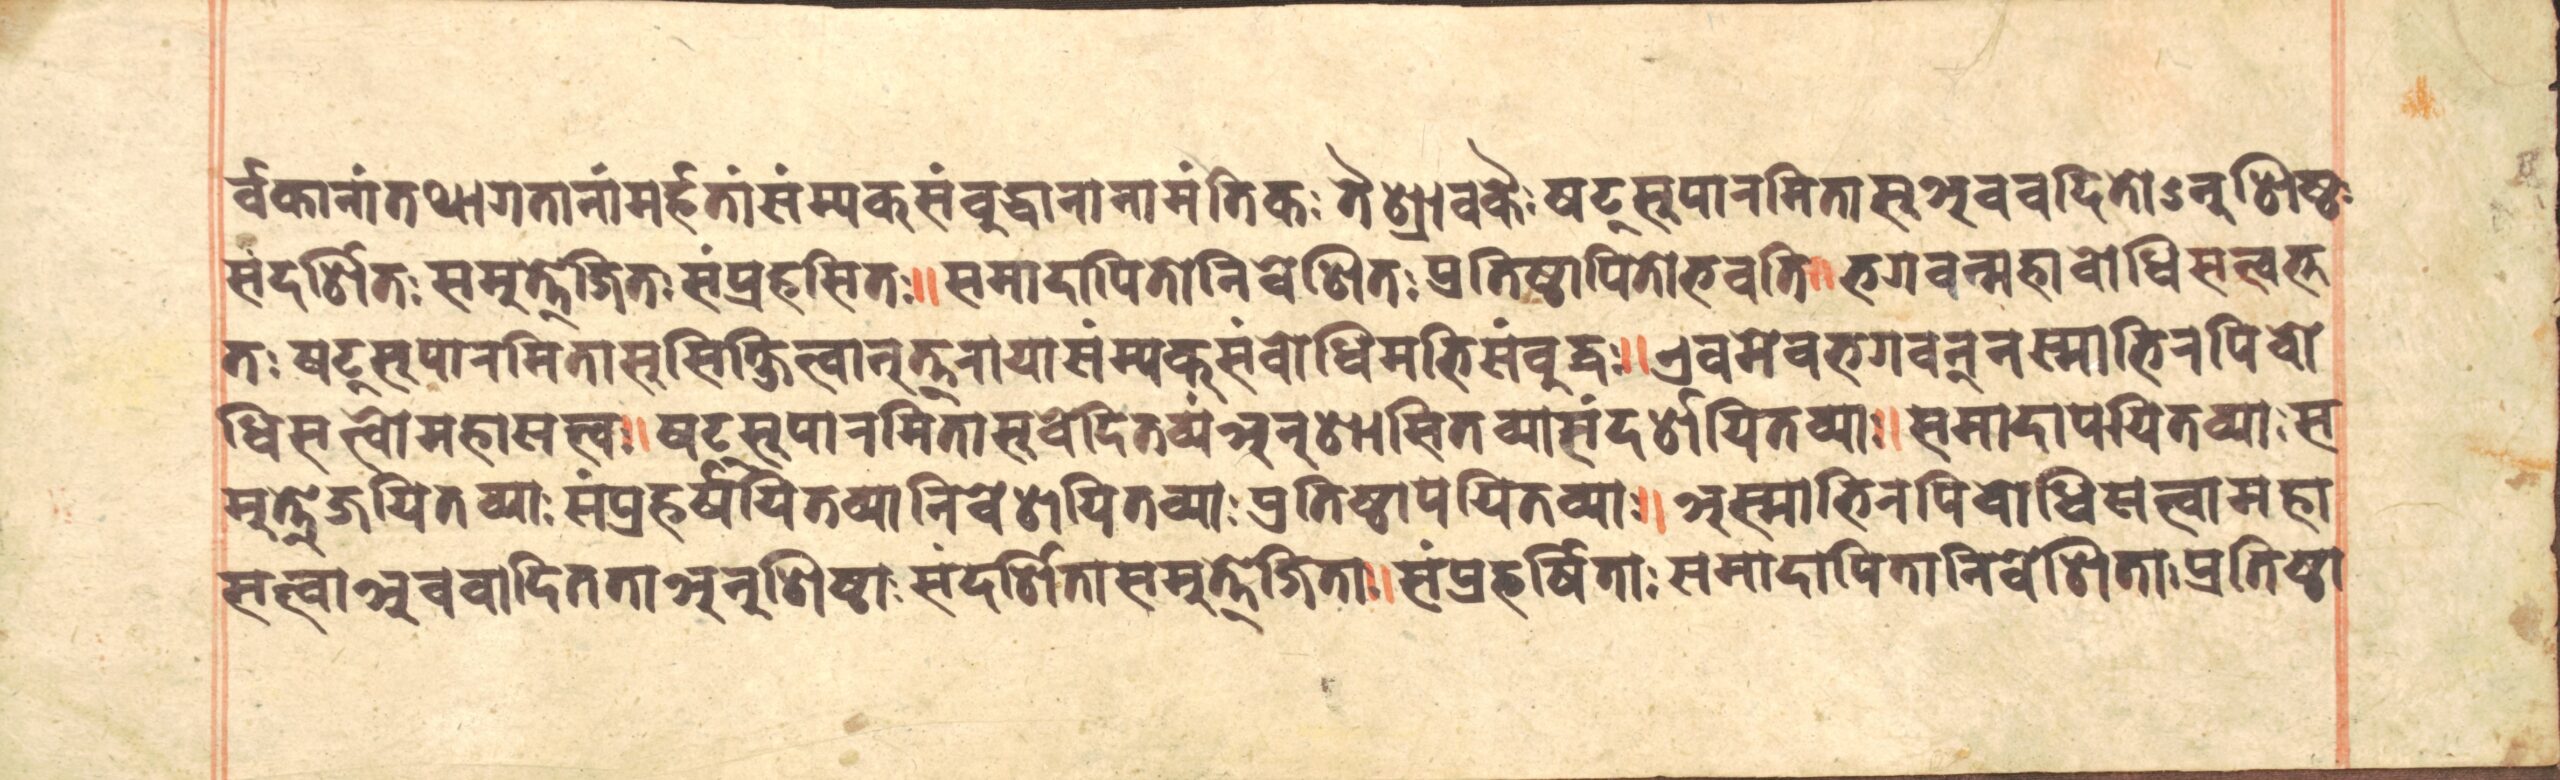 र्वकानांतथागतानांमर्हतांसंम्यक्संवुद्धानानामंतिकः तैश्रावकैः षट्सुपारमितासुअववदितोऽनुशिष्ठः
संदर्शितः समुत्तेजितः संप्रहसितः॥ समादापितोनिवेशितः प्रतिष्ठापितोभवति॥ भगवन्महावोधिसत्त्वभू
तः षट्सुपारमितासुसिक्षित्वानुत्तरायासंम्यक्संवोधिमभिसंवुद्धः॥ एवमेवभगवन्नस्माभिरपिवो
धिसत्त्वोमहासत्त्वः॥ षट्सुपारमितासुवेदितव्यंअनुशासितव्यासंदर्शयितव्याः॥ समादापयितव्याः स
मुत्तेजयितव्याः संप्रहर्षयितव्यानिवेशयितव्याः प्रतिष्ठापयितव्याः॥ अस्माभिरपिवोधिसत्त्वामहा
सत्त्वाअववादितताअनुशिष्ठाः संदर्शितासमुत्तेजिताः॥ संप्रहर्षिताः समादापितानिवेशिताः प्रतिष्ठा